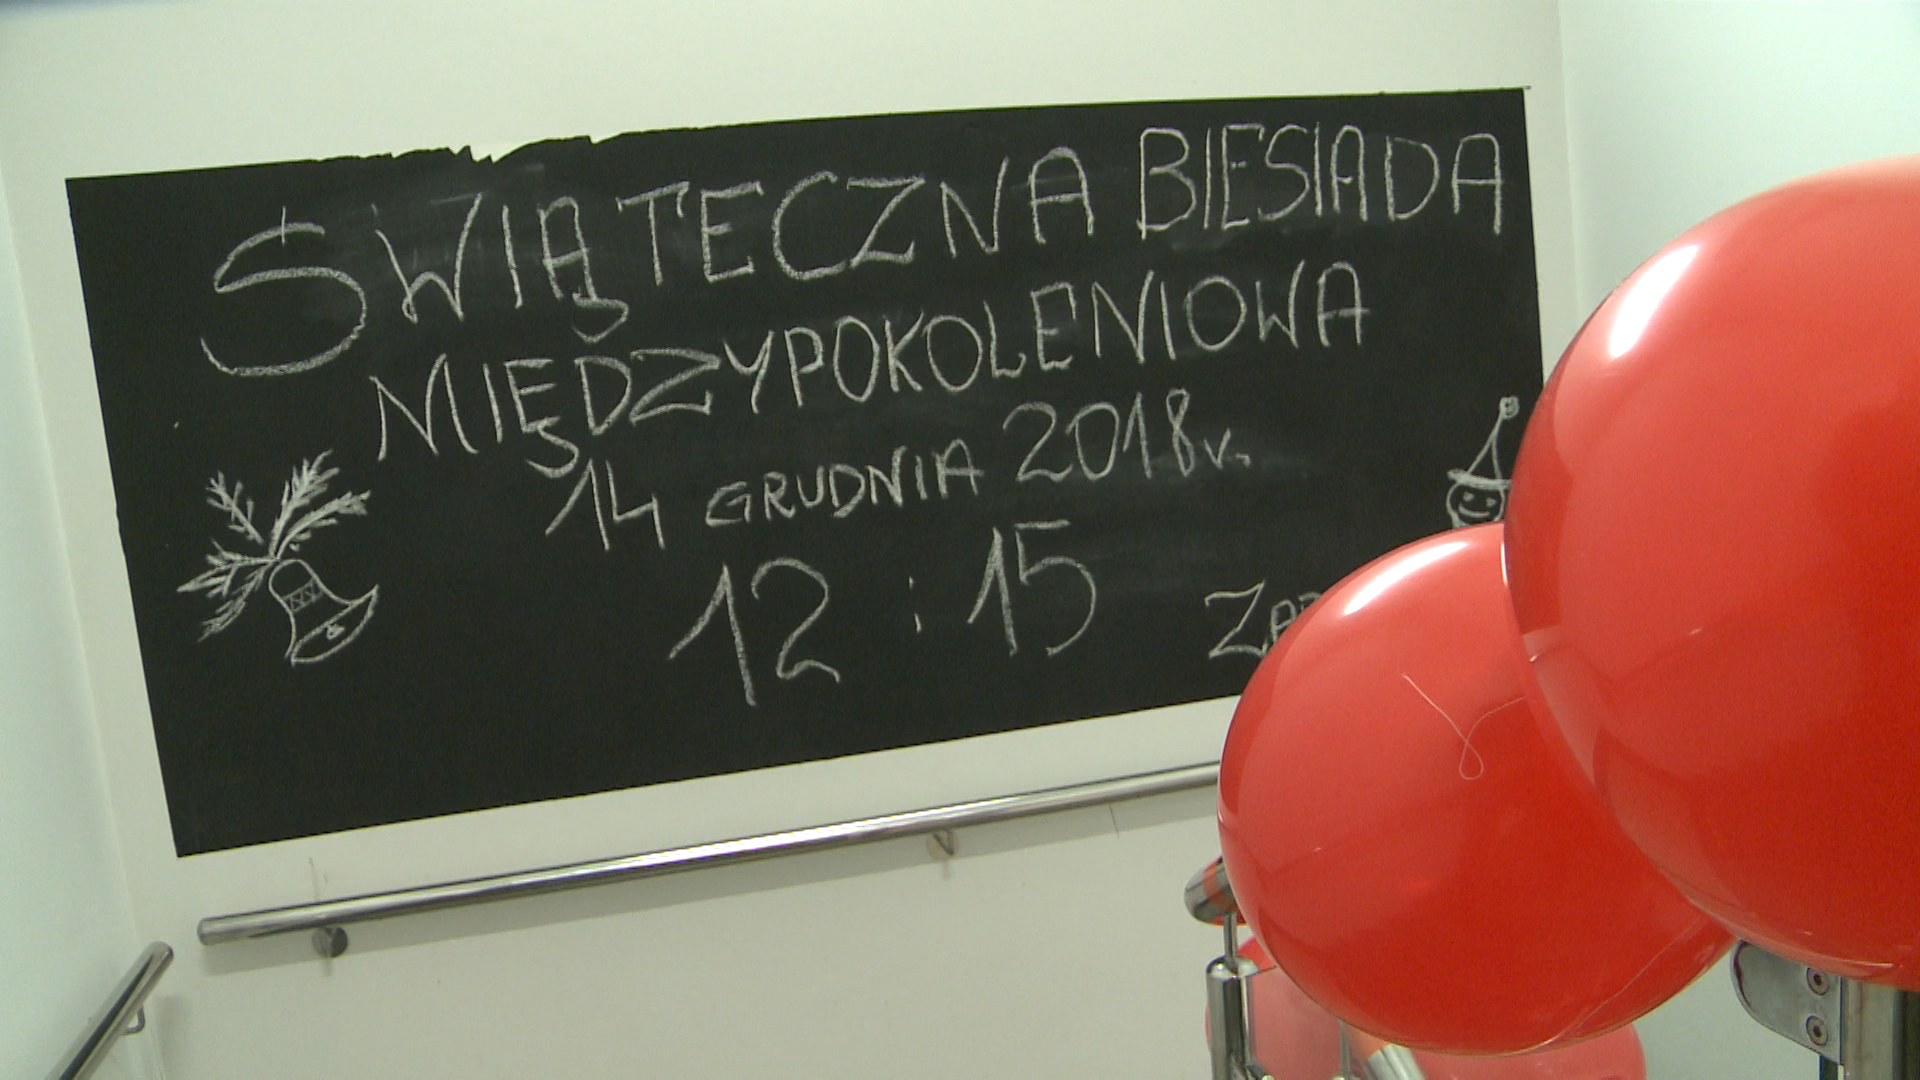 ŚWIĄTECZNA BIESIADA
MIĘDZYPOKOLENIOWA
14 GRUDNIA 2018r.
12:15